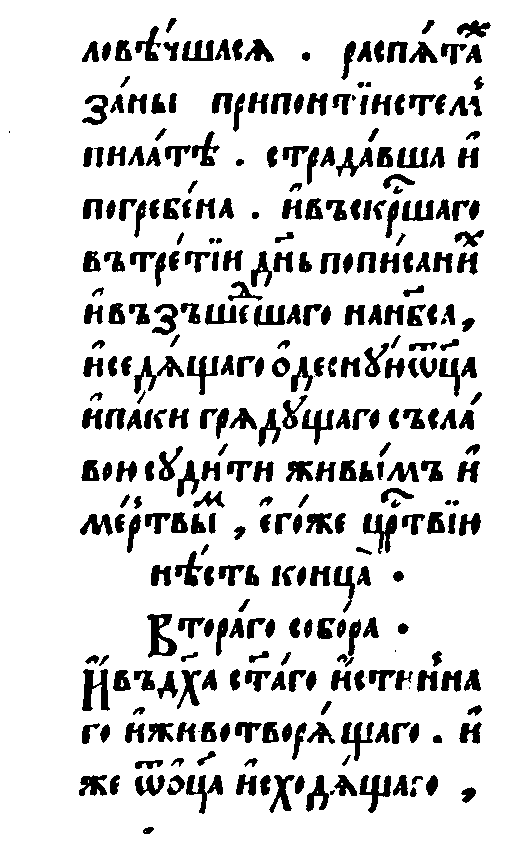 ловѣ́чшася . распѧ́та́ⷤ
за́ны припонті́истелі̑
пила́тѣ . страда́вша и҆
погребе́на . и҆въскрⷭ҇шаго
вътре́тїи дн҃ь попи́санїиⷯ
и҆възъше́ⷣшаго нанб҃са ,
и҆седѧ́щаго ѻ҆деснꙋ́иѿц҃а
и҆па́ки грѧдꙋ́щаго съсла́
вою сꙋди́ти живы́мъ и҆
ме́ртвыⷨ , е҆го́же црⷭ҇твїю
нѣ́сть конца̀ .
Втора́го собо́ра .
И҆въдх҃а ст҃а́го и҆́стиннна
го и҆животворѧ́щаго . и҆
же ѿѻц҃а и҆сходѧ́щаго ,